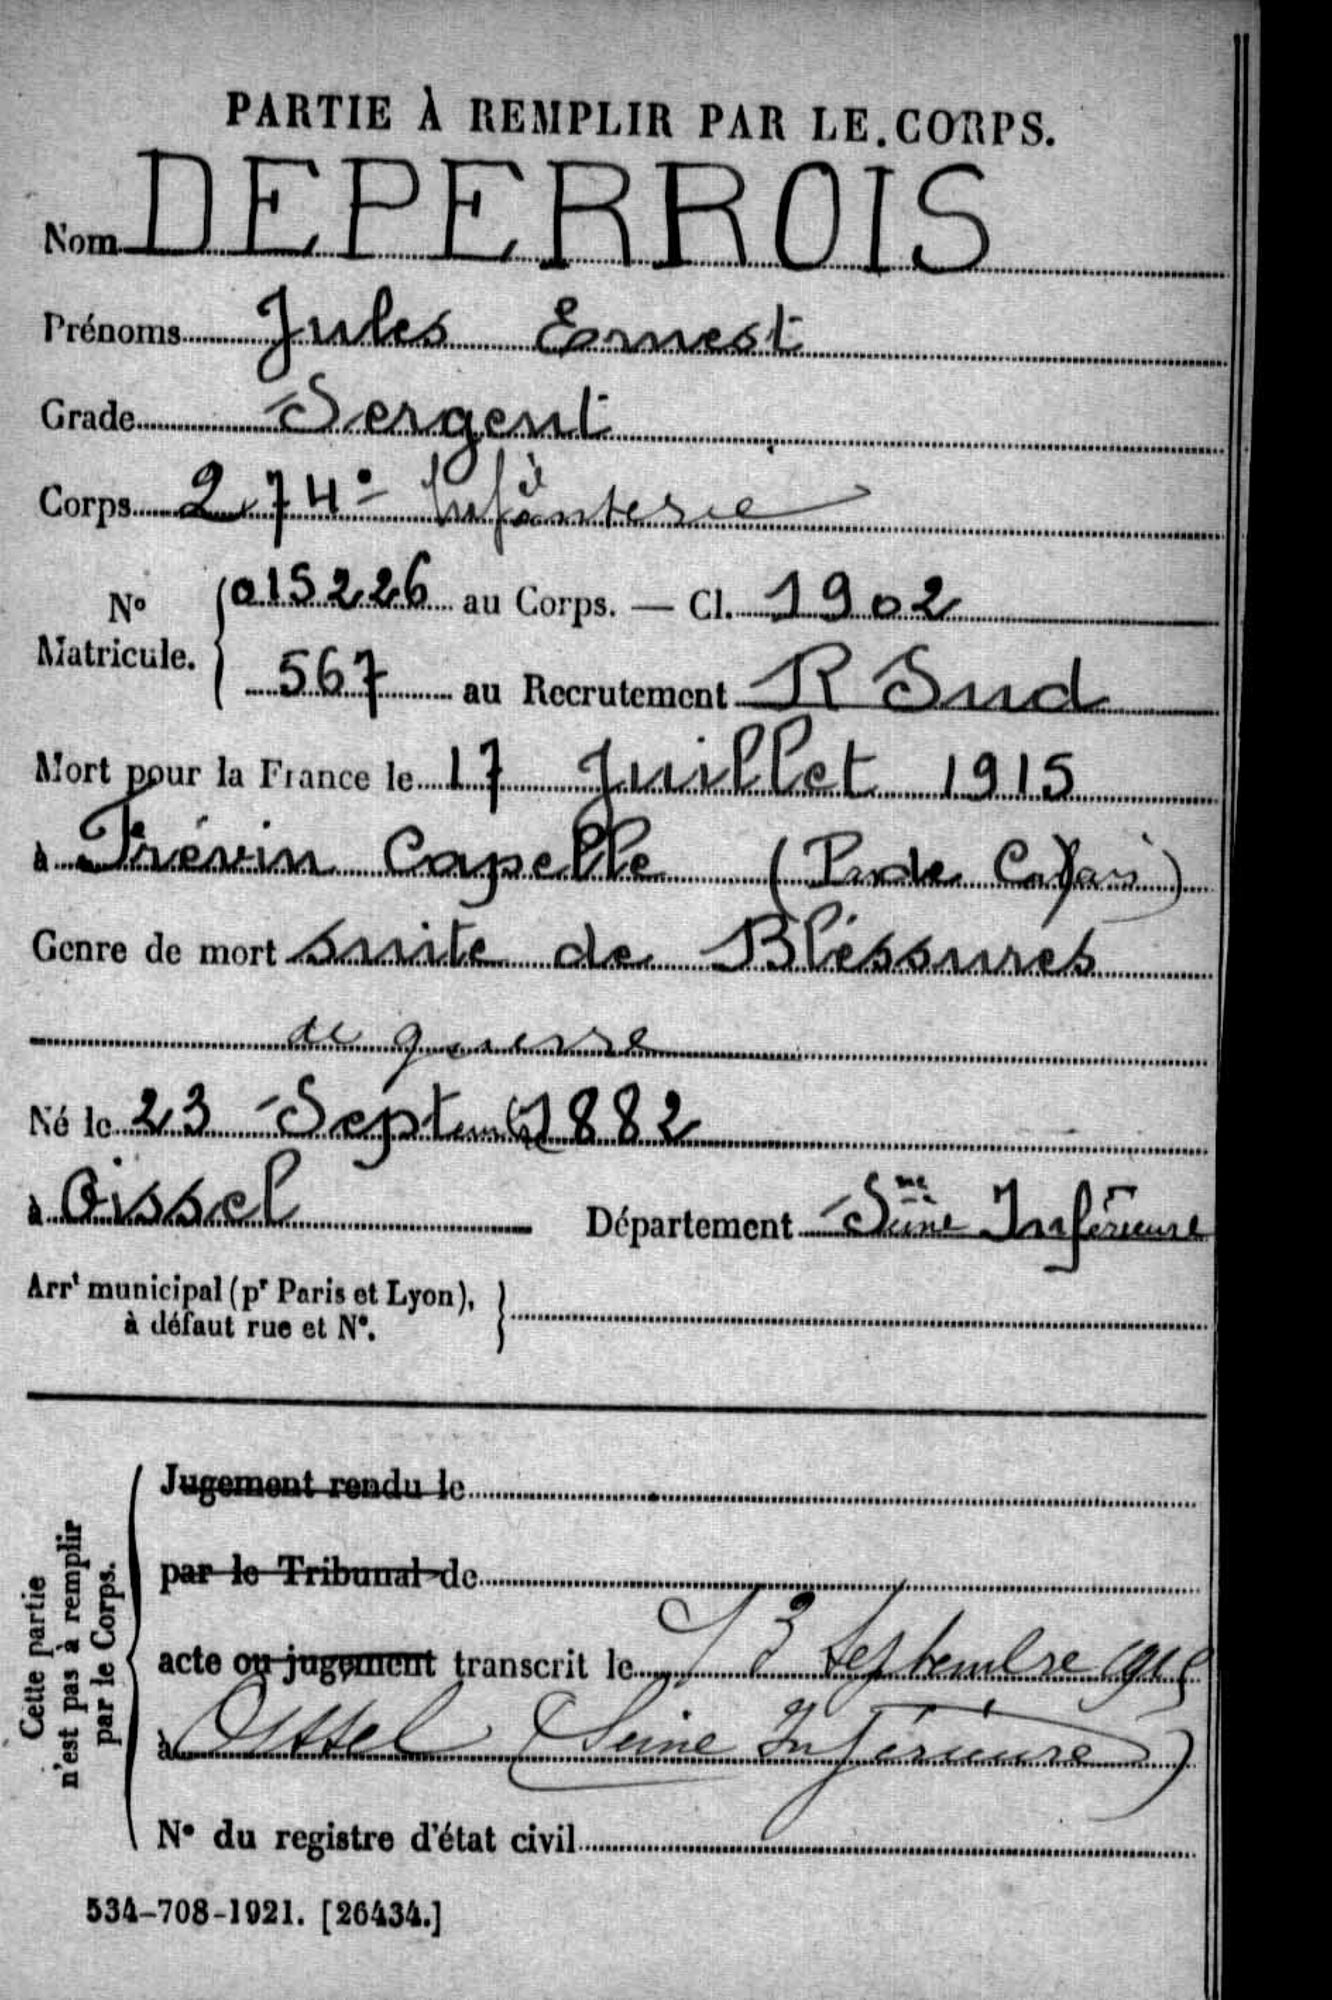 PARTIE À REMPLIR PAR LE CORPS.
Nom DEPERROIS
Prénoms Jules Ernest
Grade Sergent
Corps 274e d'Infanterie
No Matricule. 015226 au Corps. — Cl. 1902
567 au Recrutement R Sud
Mort pour la France le 17 Juillet 1915
à Frévin Capelle (Pas de Calais)
Genre de mort suite de Bléssures
de guerre
Né le 23 Septembre 1882
à Oissel Département Seine Inférieure
Arrt municipal (pr Paris et Lyon),
à défaut rue et No.
Cette partie
n'est pas à remplir
par le Corps.
Jugement rendu le
par le Tribunal de
acte ou jugement transcrit le 13 Septembre 1915
à Oissel (Seine Inférieure)
No du registre d'état civil
534-708-1921. [26434.]